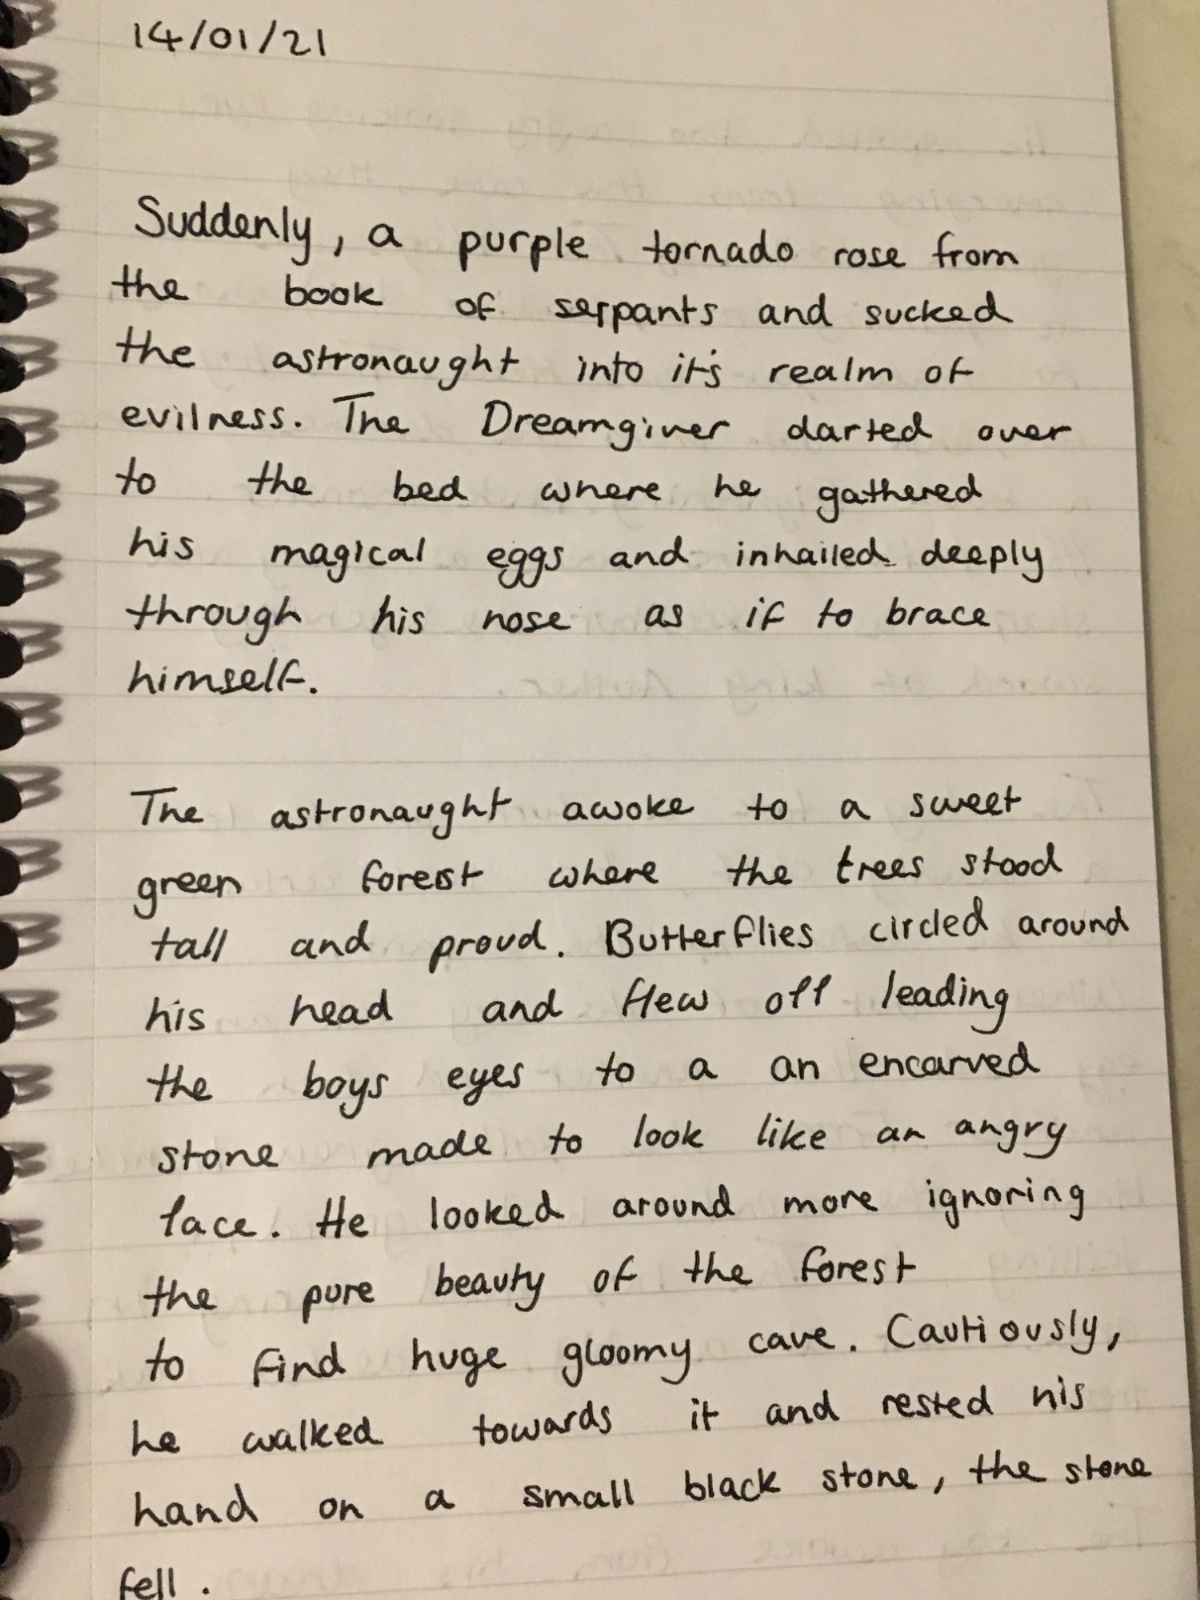 14/01/21
Suddenly, a purple tornado rose from
the book of serpants and sucked
the astronaught into it's realm of
evilness. The Dreamgiver darted over
to the bed where he gathered
his magical eggs and inhailed deeply
through his nose as if to brace
himself.
The astronaught awoke to a sweet
green forest where the trees stood
tall and proud. Butterflies circled around
his head and flew off leading
the boys eyes to a an encarved
stone made to look like an angry
face. He looked around more ignoring
the pure beauty of the forest
to find huge gloomy cave. Cautiously,
he walked towards it and rested his
hand on a small black stone, the stone
fell.